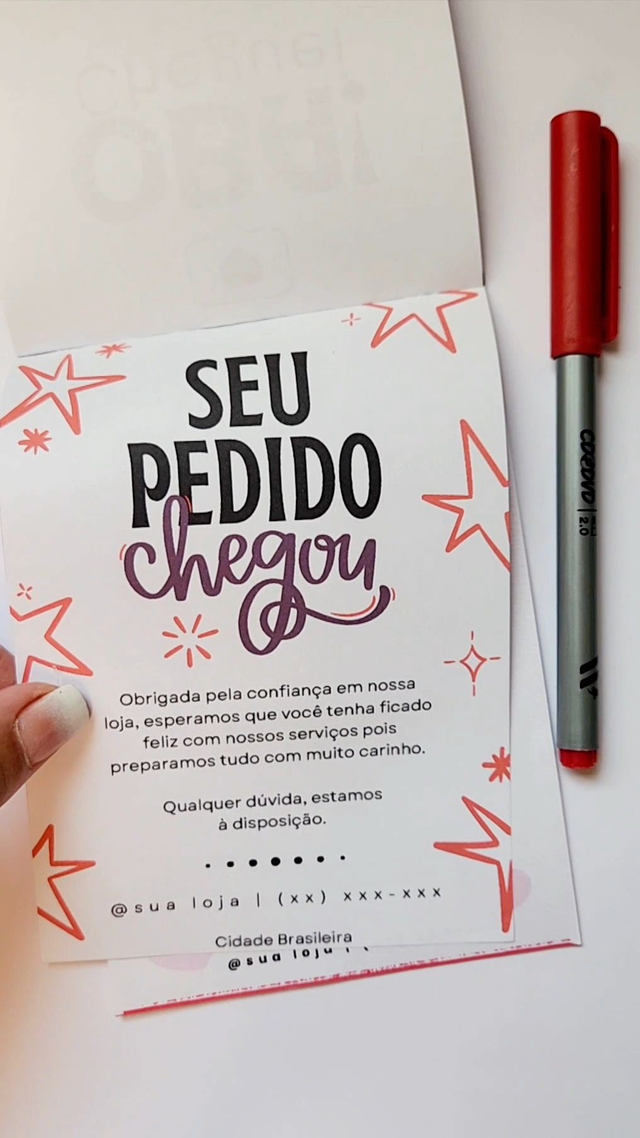 SEU
PEDIDO
chegou
Obrigada pela confiança em nossa
loja, esperamos que você tenha ficado
feliz com nossos serviços pois
preparamos tudo com muito carinho.
Qualquer dúvida, estamos
à disposição.
@sua loja | (xx) xxx-xxx
Cidade Brasileira
@sua loja
2.0